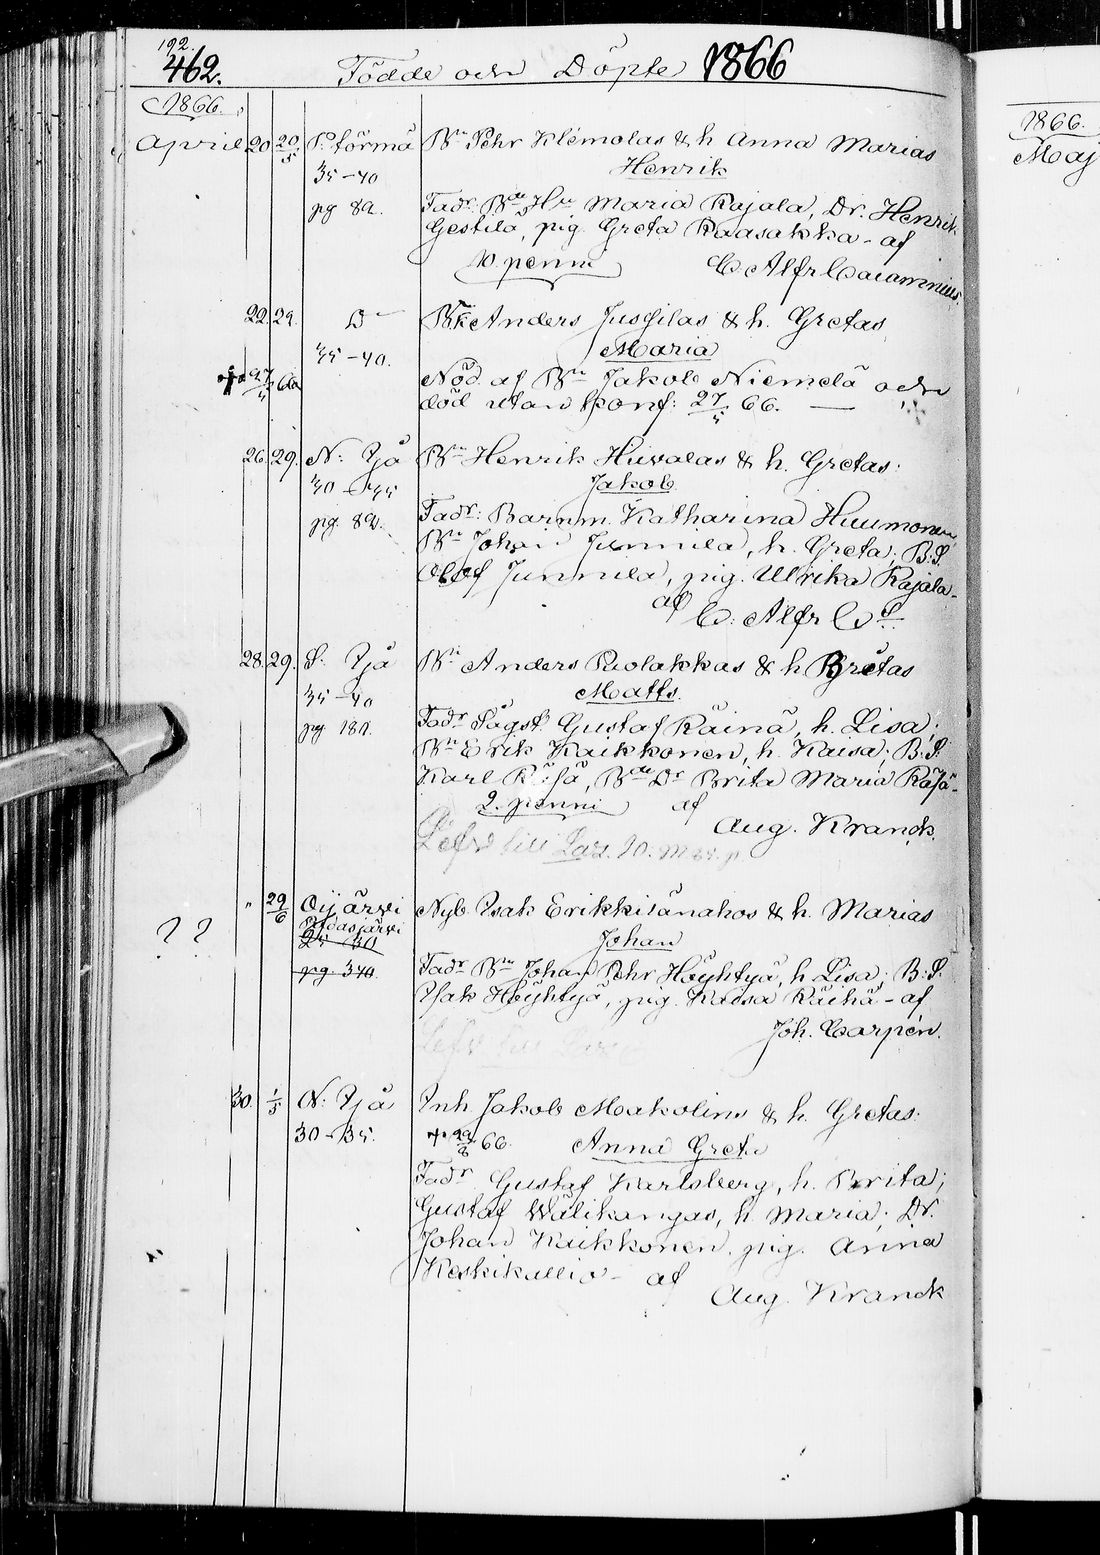 192.
462. Födde och Döpte 1866
1866. 1866.
April 20 20/5 P. törmä Bn Pehr Klemolas & h Anna Marias Maj
35-40 Henrik
pg 82. Fadr: Maria Rajala, Dr. Henrik
Gestilä, pig. Greta Raasakka - af
10. penni C. Alfr Cajanus
22. 29. D- Anders Jussilas & h. Gretas
35-40. Maria
† 27/5 66 Nöd. af Bn Jakob Niemelä och
död utan konf: 27/5 66. —
26. 29. N: Ijå Bn Henrik Huvalas & h. Gretas:
30-35 Jakob
pg. 82. Fadr: Barnm. Katharina Huumonen,
Bn Johan Junnila, h. Greta; B.S.
Olof Junnila, pig. Ulrika Rajala-
af C: Alfr Cs
28. 29. S. Ijå Bn Anders Puolakkas & h Bretas
35-40 Matts.
pg 180. Fadr Sågst. Gustaf Räinä, h. Lisa;
Bn Erik Kaikkonen, h. Kaisa; B.S.
Karl, Dr Brita Maria
2. penni af
Aug. Kranck.
" 29/6 Oijärvi Nyb. Isak Erikkilänahos & h. Marias
? ? Pudasjärvi
25 30 Johan
pg. 340. Fadr Bn Johan Pehr Höyhtyä, h Lisa; B.S.
Isak Höyhtyä, pig. Kaisa Räihä - af
Joh. Carpén.
30. 1/5 N: Ijå Inh Jakob Makolins & h. Gretas:
30-35. † 29/8 66. Anna Greta
Fadr Gustaf Karlsberg, h. Brita;
Gustaf Wälikangas, h. Maria; Dr.
Johan Kaikkonen, pig. Anna
Keskikallio - af
Aug. Kranck